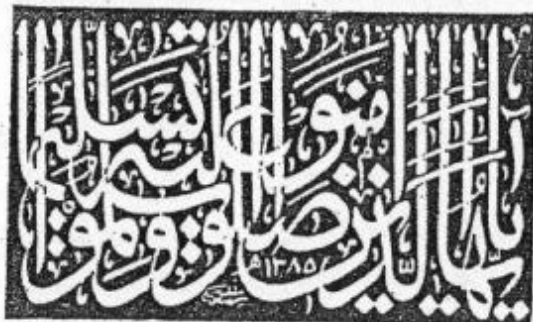 يا أيها الذين آمنوا صلوا عليه وسلموا تسليما
١٣٨٥